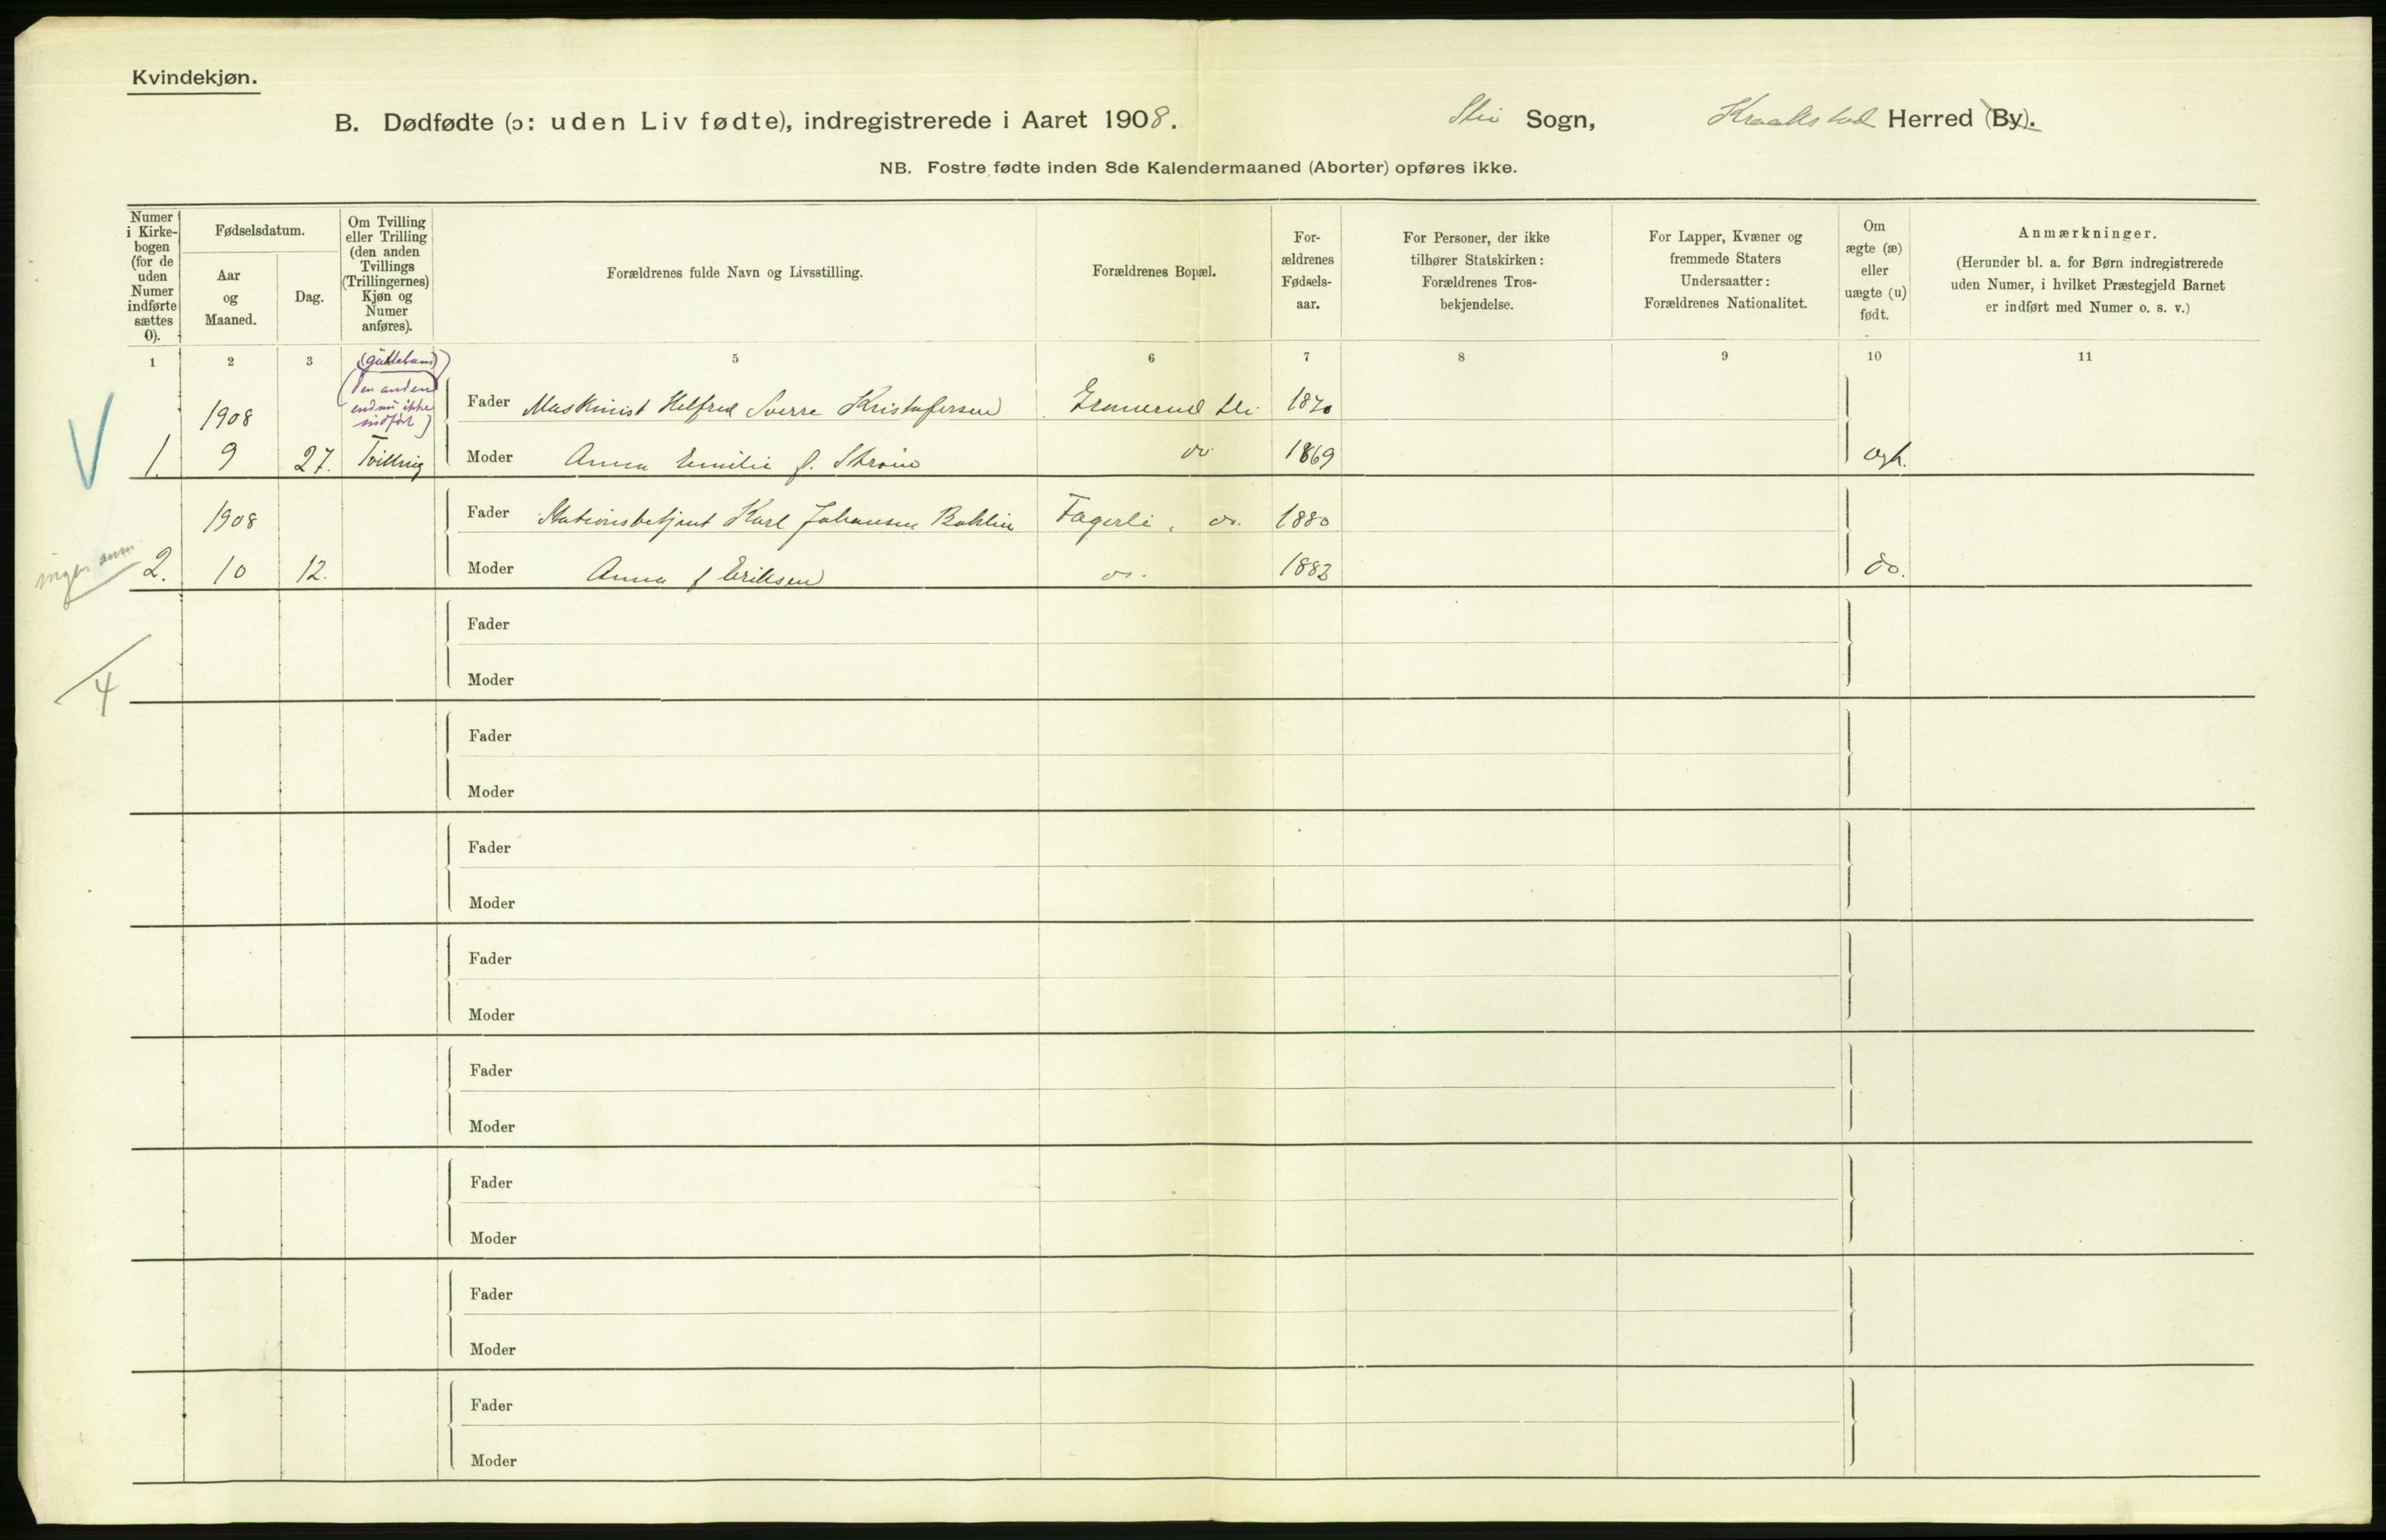 Kvindekjøn.
B. Dødfødte (ɔ: uden Liv fødte), indregistrerede i Aaret 1908.
Ski Sogn, Kraakstad Herred (By).
NB. Fostre fødte inden 8de Kalendermaaned (Aborter) opføres ikke.
Numer i Kirke-bogen (for de uden Numer indførte sættes 0).
Fødselsdatum.
Aar og Maaned.
Dag.
Om Tvilling eller Trilling (den anden Tvillings (Trillingernes) Kjøn og Numer anføres).
Forældrenes fulde Navn og Livsstilling.
Forældrenes Bopæl.
For-ældrenes Fødsels-aar.
For Personer, der ikke tilhører Statskirken: Forældrenes Tros-bekjendelse.
For Lapper, Kvæner og fremmede Staters Undersaatter: Forældrenes Nationalitet.
Om ægte (æ) eller uægte (u) født.
Anmærkninger.
(Herunder bl. a. for Børn indregistrerede uden Numer, i hvilket Præstegjeld Barnet er indført med Numer o. s. v.)
1 2 3 5 6 7 8 9 10 11
(guttebarn)
(den anden
endnu ikke
indført)
1908 Fader Maskinist Helfred Sverre Kristofersen Ski 1870
1. 9 27. Tvilling Moder Anna Emilie f. Strøm do 1869 Ægt.
1908 Fader Stationsbetjent Karl Johansen Bohlin Fagerli, do. 1880
ingen anm.
2. 10 12. Moder Anna f Eriksen do. 1882 do.
Fader
Moder
4
Fader
Moder
Fader
Moder
Fader
Moder
Fader
Moder
Fader
Moder
Fader
Moder
Fader
Moder